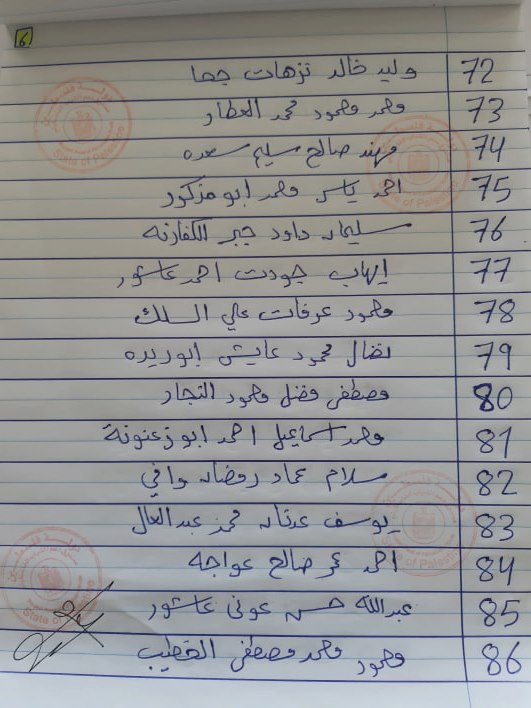 6
72 وليد خالد نزهات جحا
73 محمد محمود محمد العطار
74 مهند صالح سليم سعده
75 احمد ياسر محمد ابو مذكور
76 سليمان داود جبر الكفارنه
77 إيهاب جودت احمد عاشور
78 محمود عرفات علي السلك
79 نضال محمود عايش ابوريده
80 مصطفى فضل محمود النجار
81 محمد اسماعيل احمد ابو زعنونة
82 سلام عماد رمضان وافي
83 يوسف عدنان محمد عبد العال
84 احمد عمر صالح عواجه
85 عبدالله حسن عوني عاشور
86 محمود محمد مصطفى الخطيب
State of Palestine
State of Palestine
State of Palestine
State of Palestine